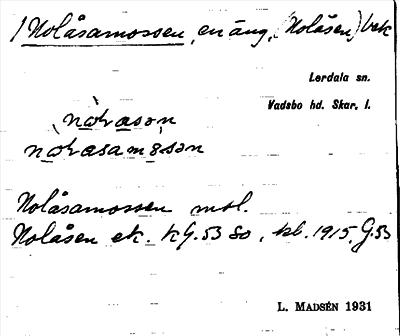 1 Nolåsamossen, en äng, (Nolåsen) bek
Lerdala sn.
Vadsbo hd. Skar. l.
Nolåsamossen msl.
Nolåsen ek. KG.53 So, kl. 1915, G.53
L. MADSÉN 1931